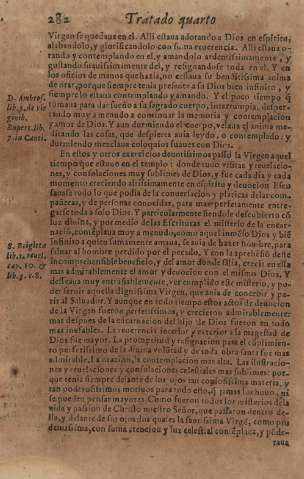 282 Tratado quarto
Virgen se quedaua en el. Alli estaua adorando a Dios en espiritu,
alabandolo, y glorificandolo con suma reuerencia. Alli estaua o-
rando y contemplando en el, y amandolo ardentissimamente, y
gustando suauissimamente del, y resignandose toda en el. Y en
los oficios de manos que hazia, no cessaua su benditissima anima
de orar, porque siempre tenia presente a su Dios bien infinito, y
siempre lo estaua contemplando y amando. Y el poco tiempo q̃
tomaua para dar sueño a su sagrado cuerpo, interrumpia, disper-
tando muy a menudo a continuar la memoria y contemplacion
y amor de Dios. Y aun durmiendo el cuerpo, velaua el anima me-
ditando las cosas, que despierta auia leydo, o contemplado: y
durmiendo mezclaua coloquios suaues con Dios.
En estos y otros exercicios deuotissimos passò la Virgen aquel
tiempo que estuuo en el templo: donde tuuo visitas y reuelacio-
nes, y consolaciones muy sublimes de Dios, y fue cada dia y cada
momento creciendo altissimamente en espiritu y deuocion. Escu
sauase todo lo que podia de la conuersacion y platicas de las com-
pañeras, y de personas conocidas, para mas perfetamente entre-
garse toda a solo Dios. Y particularmente siendole descubierto cõ
luz diuina, y por medio de las Escrituras el misterio de la encar-
nació, contẽplaua muy a menudo, como aquel inmẽso Dios y biẽ
infinito a quien sumamente amaua, se auia de hazer hombre, para
saluar al hombre perdido por el pecado. Y con la aprehensiõ deste
incomprehensible beneficio, y del amor donde salia, crecia en ella
mas admirablemente el amor y deuocion con el mismo Dios. Y
desseaua muy entrañablemente, ver cumplido este misterio, y po-
der seruir aquella dignissima Virgen, que auia de concebir y pa-
rir al Saluador. Y aunque en todo tiempo estos actos de deuocion
de la Virgen fueron perfetissimos, y crecieron admirablemente:
mas despues de la encarnacion del hijo de Dios fueron en todo
mas inefables. La reuerencia interior y exterior a la magestad de
Dios fue mayor. La promptitud y resignacion para el cũplimiento
perfetissimo de la diuina volũtad y de toda obra santa fue mas
admirable. La oracion, la contemplacion mas alta. Las ilustracio-
nes y reuelaciones y consolaciones celestiales mas sublimes: por-
que tenia siempre delante de los ojos tan copiosissima materia, y
tan poderosissimos motiuos para todo esto, q̃ jamas los huuo, ni
se pueden pensar mayores. Como fueron todos los misterios de la
vida y passion de Christo nuestro Señor, que passaron dentro de-
lla, y delante de sus ojos: los quales la santissima Virgẽ, como pru
dentissima, con suma atencion y luz celestial contẽplaua, y pene-
traua
D. Ambros.
lib. 2. de vir
ginib.
Rupert. lib.
7. in Canti.
S. Brigitta
lib. 1. reuel.
cap. 10. &
lib. 3. c. 8.